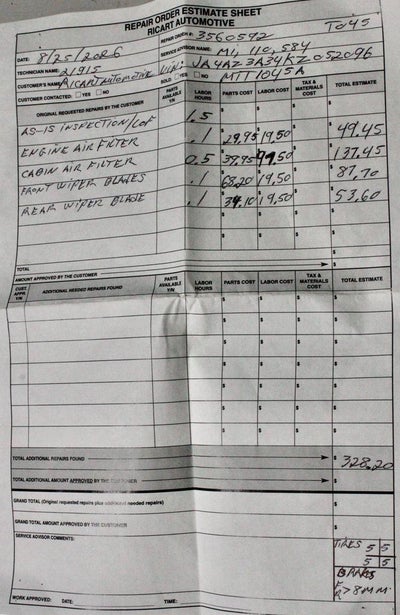 REPAIR ORDER ESTIMATE SHEET
RICART AUTOMOTIVE
TO45
DATE: 8/25/2026 REPAIR ORDER #: 3560592
TECHNICIAN NAME: 21915 SERVICE ADVISOR NAME: MI, 110,584
CUSTOMER'S NAME: RICART AUTOMOTIVE VIN: JA4AZ3A34KZ052096
CUSTOMER CONTACTED: YES NO SOLD: YES NO MTT1045A
ORIGINAL REQUESTED REPAIRS BY THE CUSTOMER PARTS AVAILABLE Y/N LABOR HOURS PARTS COST LABOR COST TAX & MATERIALS COST TOTAL ESTIMATE
AS-IS INSPECTION/LOF 1.5 $ $ $ $
ENGINE AIR FILTER .1 $ 29.95 $ 19.50 $ $ 49.45
CABIN AIR FILTER 0.5 $ 39.95 $ 97.50 $ $ 137.45
FRONT WIPER BLADES .1 $ 68.20 $ 19.50 $ $ 87.70
REAR WIPER BLADE .1 $ 34.10 $ 19.50 $ $ 53.60
TOTAL
AMOUNT APPROVED BY THE CUSTOMER
CUST. APPR. Y/N ADDITIONAL NEEDED REPAIRS FOUND PARTS AVAILABLE Y/N LABOR HOURS PARTS COST LABOR COST TAX & MATERIALS COST TOTAL ESTIMATE
TOTAL ADDITIONAL REPAIRS FOUND $ 328.20
TOTAL ADDITIONAL AMOUNT APPROVED BY THE CUSTOMER $
GRAND TOTAL (Original requested repairs plus additional needed repairs) $
GRAND TOTAL AMOUNT APPROVED BY THE CUSTOMER $
SERVICE ADVISOR COMMENTS:
TIRES 5 5
5 5
BRAKES
F
R > 8MM
WORK APPROVED: DATE: TIME: